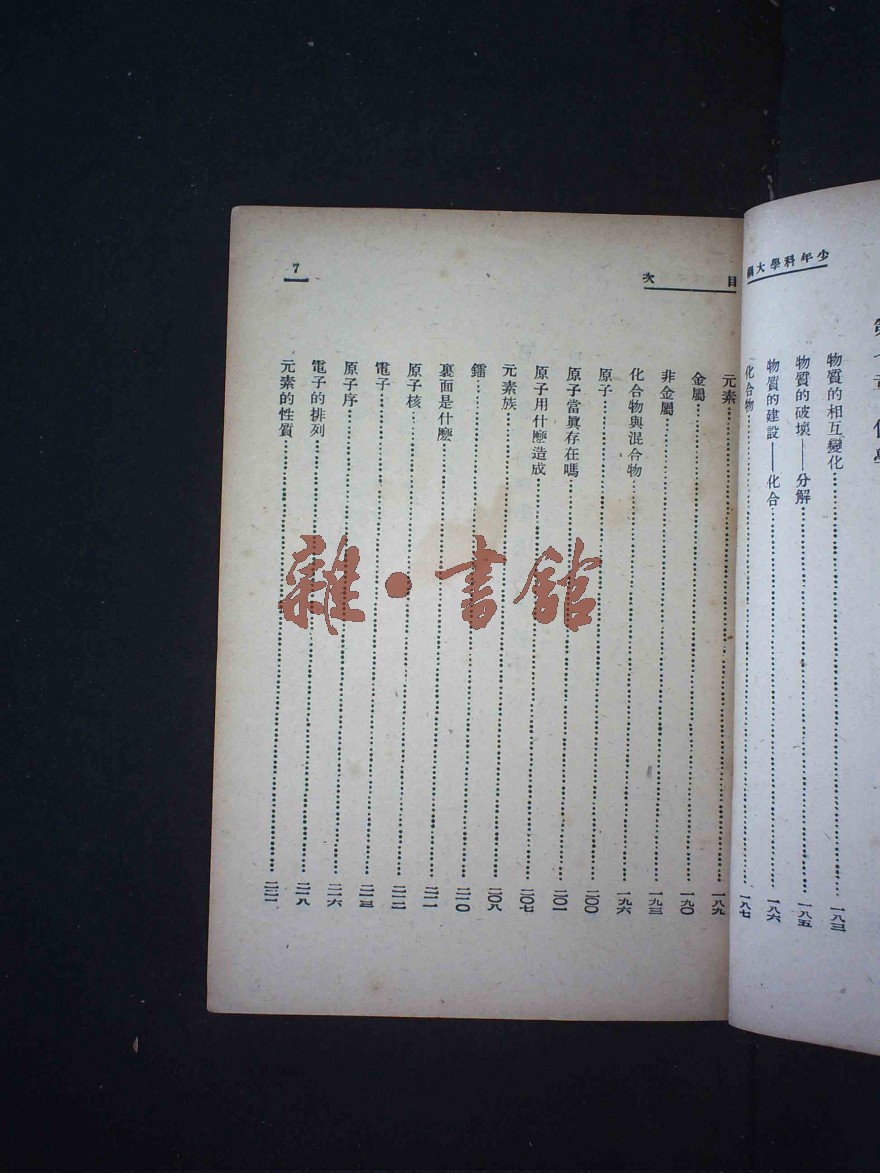 少年科學大綱
物質的相互變化……一八三
物質的破壞——分解……一八五
物質的建設——化合……一八六
化合物……一八七
目次
7
元素……一八九
金屬……一九〇
非金屬……一九三
化合物與混合物……一九六
原子……二〇〇
原子當眞存在嗎……二〇一
原子用什麽造成……二〇七
元素族……二〇八
鐳……二一〇
裏面是什麽……二一一
原子核……二一二
電子……二一三
原子序……二一六
電子的排列……二一八
元素的性質……二二一
雜·書館